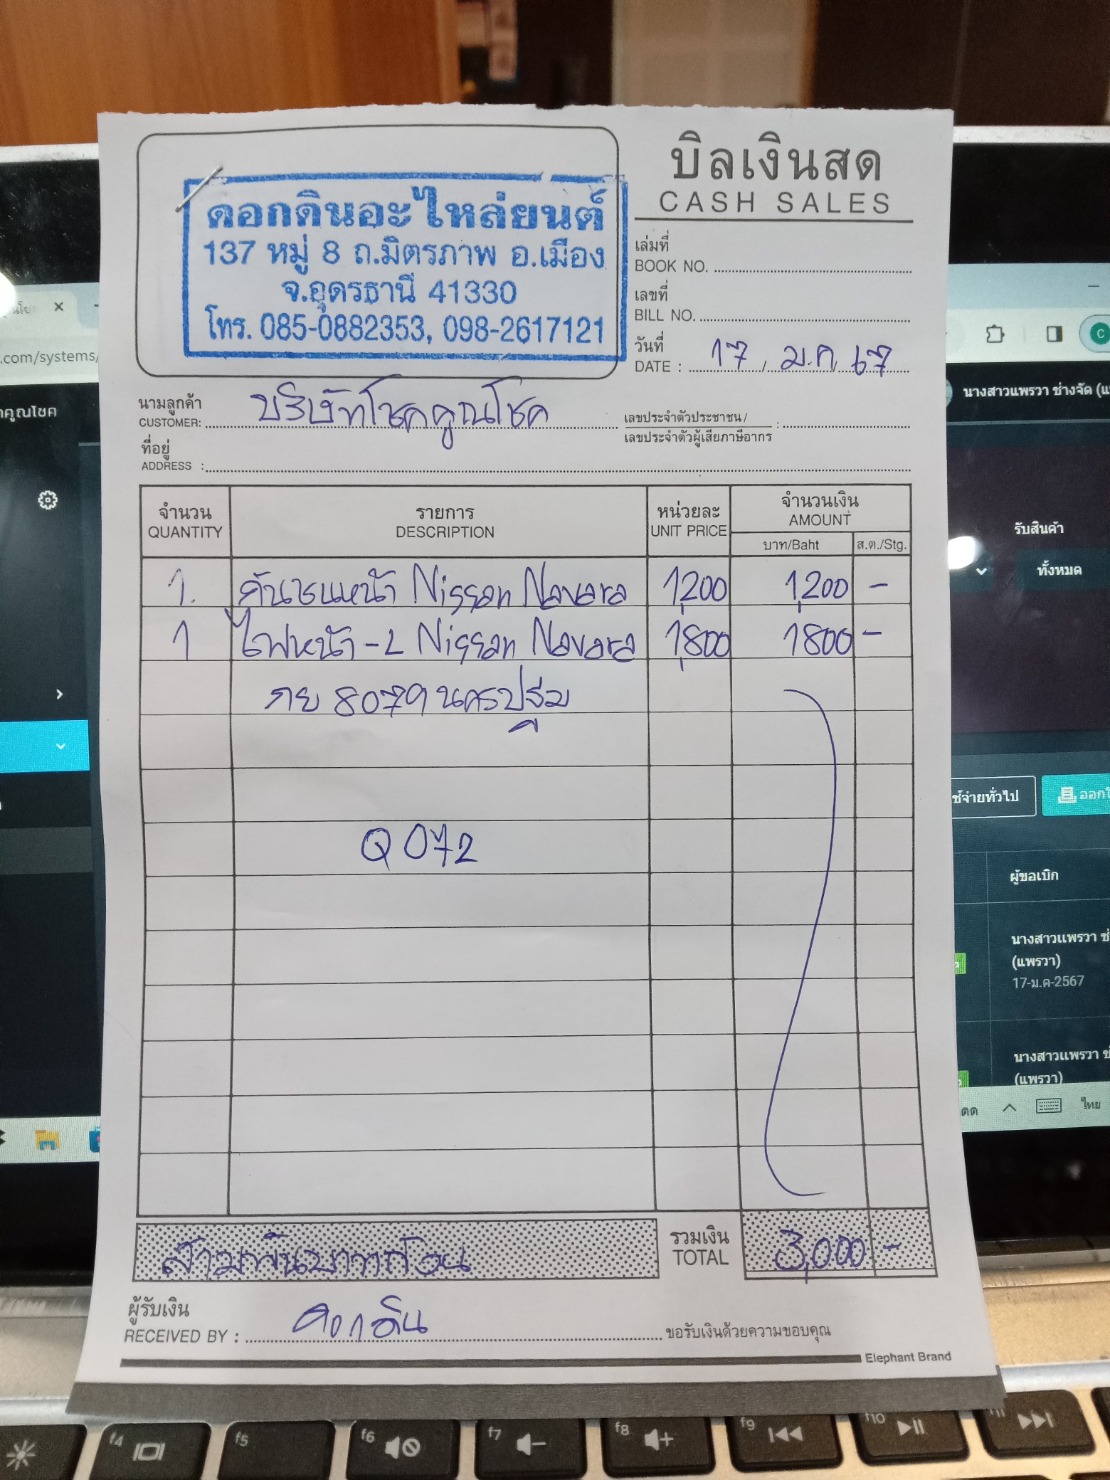 ดอกดินอะไหล่ยนต์
137 หมู่ 8 ถ.มิตรภาพ อ.เมือง
จ.อุดรธานี 41330
โทร. 085-0882353, 098-2617121
บิลเงินสด
CASH SALES
เล่มที่
BOOK NO.
เลขที่
BILL NO.
วันที่
DATE : 17 / ม.ค / 67
นามลูกค้า
CUSTOMER: บริษัทโชคคูณโชค
เลขประจำตัวประชาชน/
เลขประจำตัวผู้เสียภาษีอากร :
ที่อยู่
ADDRESS :
จำนวน รายการ หน่วยละ จำนวนเงิน
QUANTITY DESCRIPTION UNIT PRICE AMOUNT
บาท/Baht ส.ต./Stg.
1. คันชนหน้า Nissan Navara 1,200 1,200 -
1 ไฟหน้า-L Nissan Navara 1,800 1800 -
กย 8079 นครปฐม
Q072
สามพันบาทถ้วน รวมเงิน 3,000 -
TOTAL
ผู้รับเงิน
RECEIVED BY : ดอกดิน ขอรับเงินด้วยความขอบคุณ
Elephant Brand
.com/systems/
คูณโชค
C
นางสาวแพรวา ช่างจัด
รับสินค้า
ทั้งหมด
ใช้จ่ายทั่วไป
ผู้ขอเบิก
นางสาวแพรวา
(แพรวา)
17-ม.ค-2567
นางสาวแพรวา
(แพรวา)
ไทย
f4
f5
f6
f7
f8
f9
f10
f11